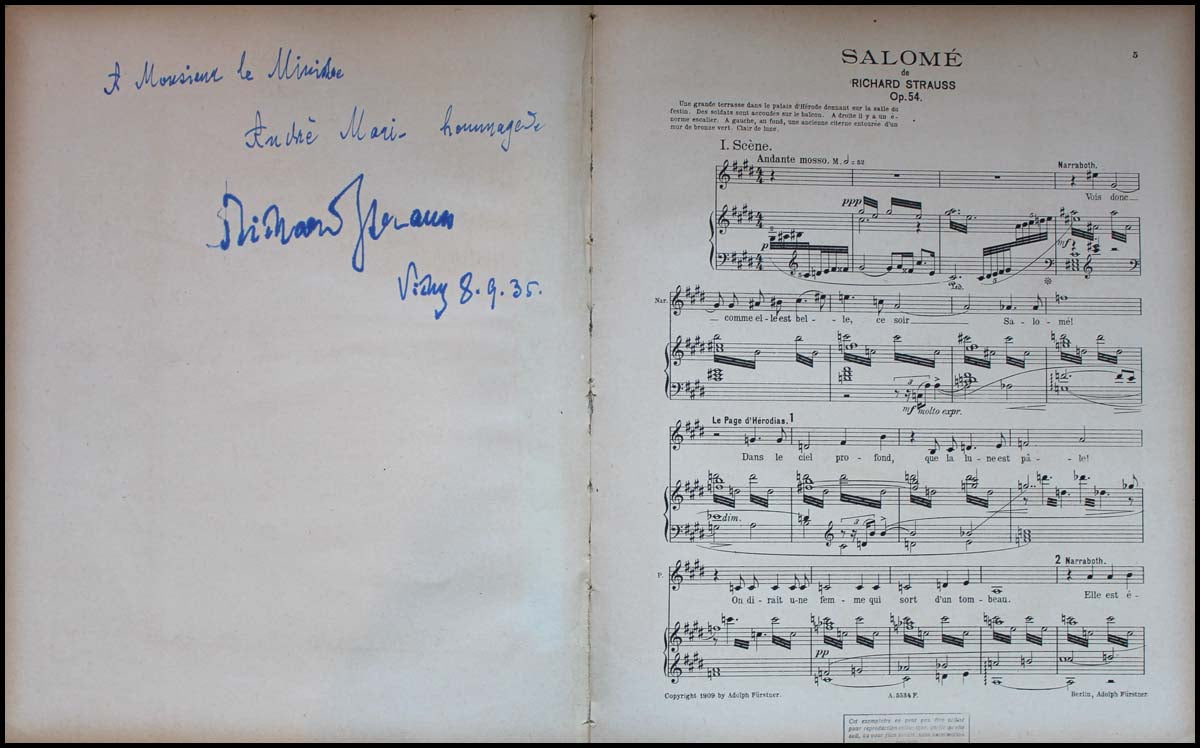 A Monsieur le Ministre
André Mari- hommage de
Richard Strauss
Vichy 8.9.35.
5
SALOMÉ
de
RICHARD STRAUSS
Op.54.
Une grande terrasse dans le palais d'Hérode donnant sur la salle du
festin. Des soldats sont accoudés sur le balcon. A droite il y a un é-
norme escalier. A gauche, au fond, une ancienne citerne entourée d'un
mur de bronze vert. Clair de lune.
I. Scène.
Andante mosso. M. = 52
Narraboth.
ppp
Vois donc
p
mf
Nar.
comme el - le est bel - - le, ce soir Sa - lo - mé!
3
mf molto expr.
Le Page d'Hérodias. 1
Dans le ciel pro - fond, que la lu - ne est pâ - - le!
dim.
3
2 Narraboth.
P.
On di - rait u - ne fem - me qui sort d'un tom - beau. Elle est é -
pp
Copyright 1909 by Adolph Fürstner. A. 5534 F. Berlin, Adolph Fürstner
Cet exemplaire ne peut pas être utilisé
pour reproduction